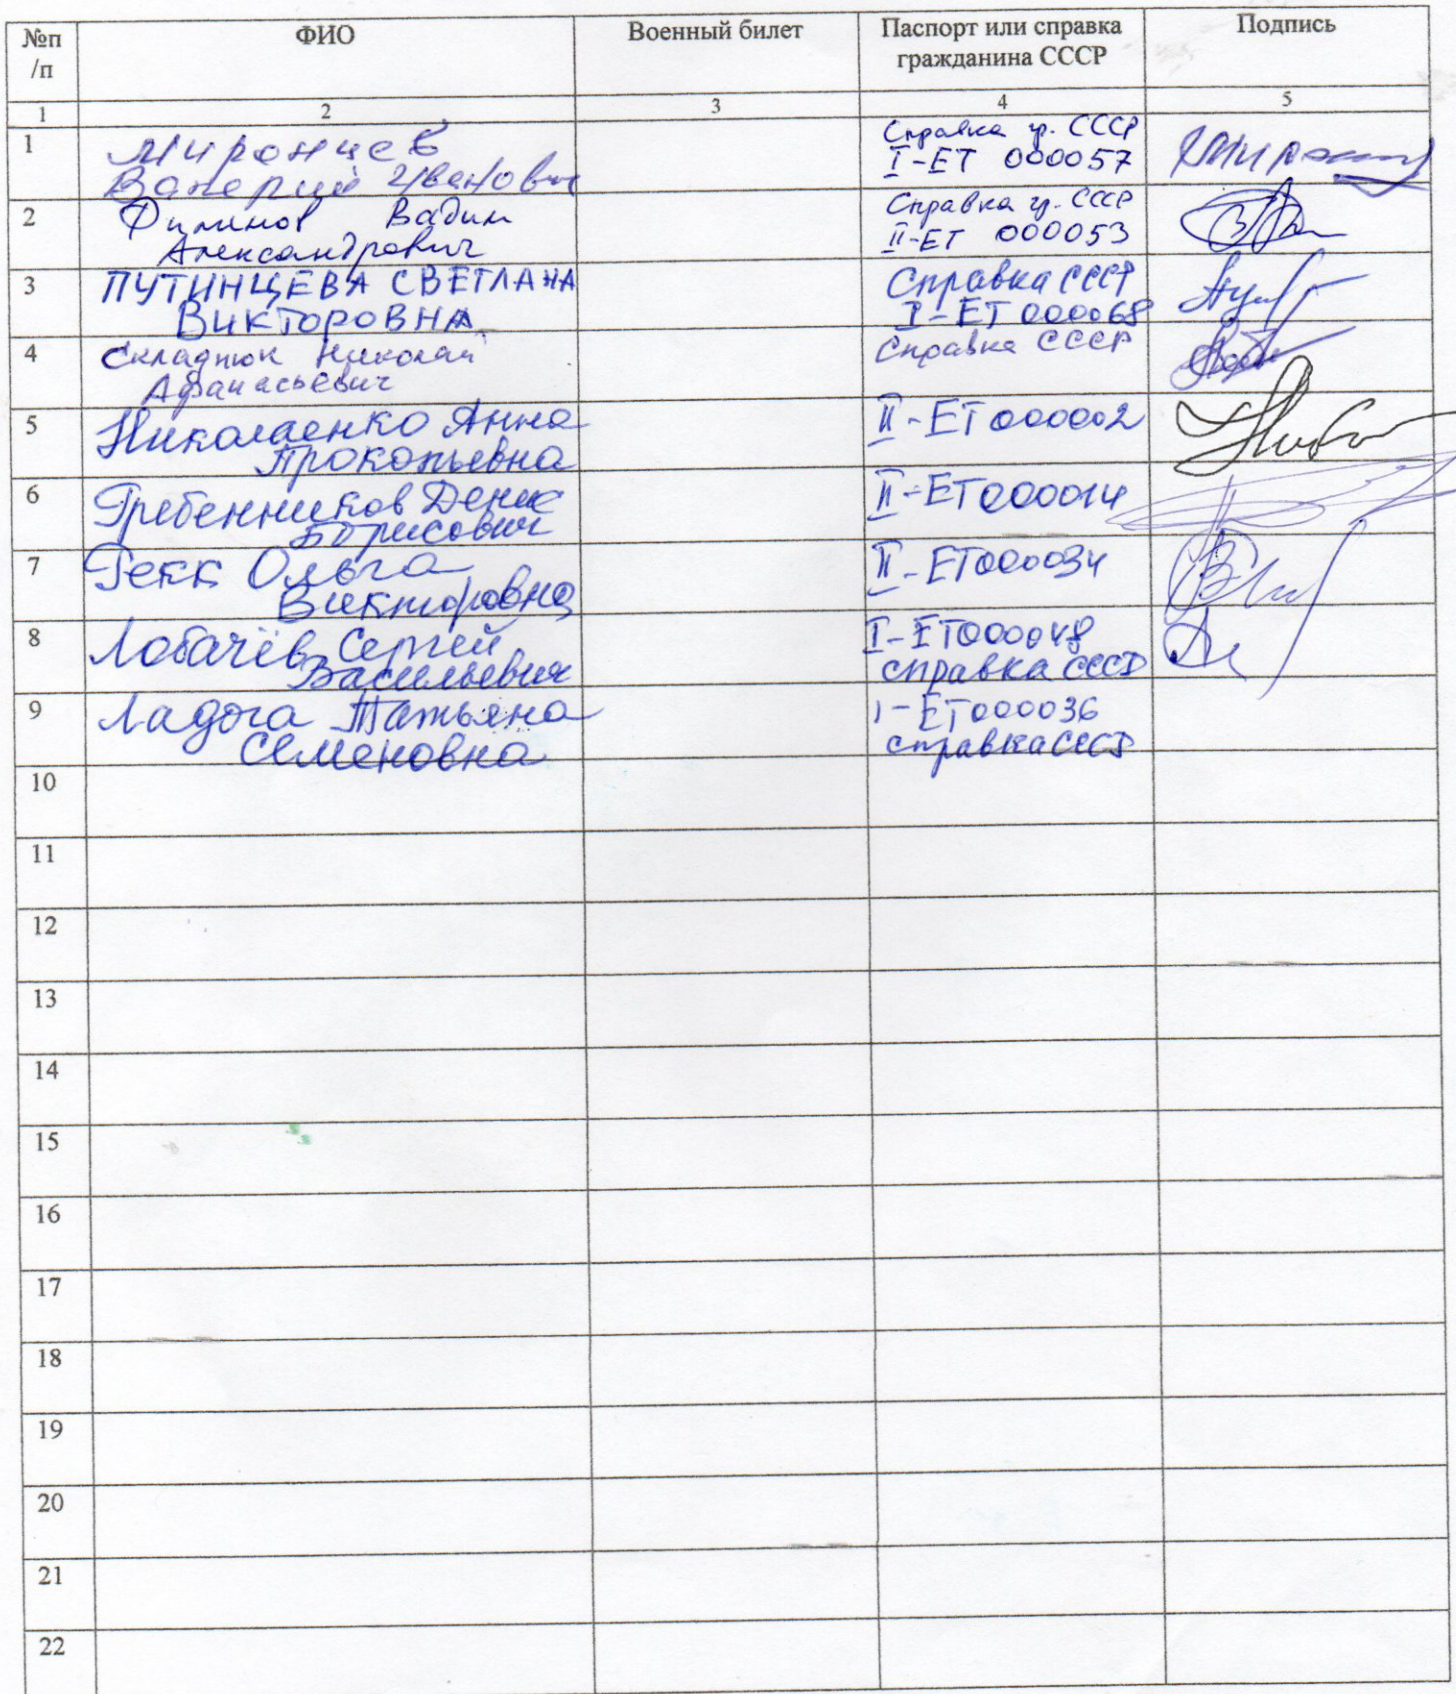 №п
/п
ФИО
Военный билет
Паспорт или справка
гражданина СССР
Подпись
1 2 3 4 5
1
Миронцев
Валерий Иванович
Справка гр. СССР
I-ЕТ 000057
2
Филинов Вадим
Александрович
Справка гр. СССР
II-ЕТ 000053
3
ПУТИНЦЕВА СВЕТЛАНА
ВИКТОРОВНА
Справка СССР
I-ЕТ 000068
4
Складнюк Николай
Афанасьевич
Справка СССР
5
Николаенко Анна
Прокопьевна
II-ЕТ 000002
6
Гребенников Денис
Борисович
II-ЕТ000014
7
Рекк Ольга
Викторовна
II-ЕТ000034
8
Лобачёв Сергей
Васильевич
I-ЕТ000048
справка СССР
9
Ладога Татьяна
Семеновна
I-ЕТ000036
справка СССР
10
11
12
13
14
15
16
17
18
19
20
21
22